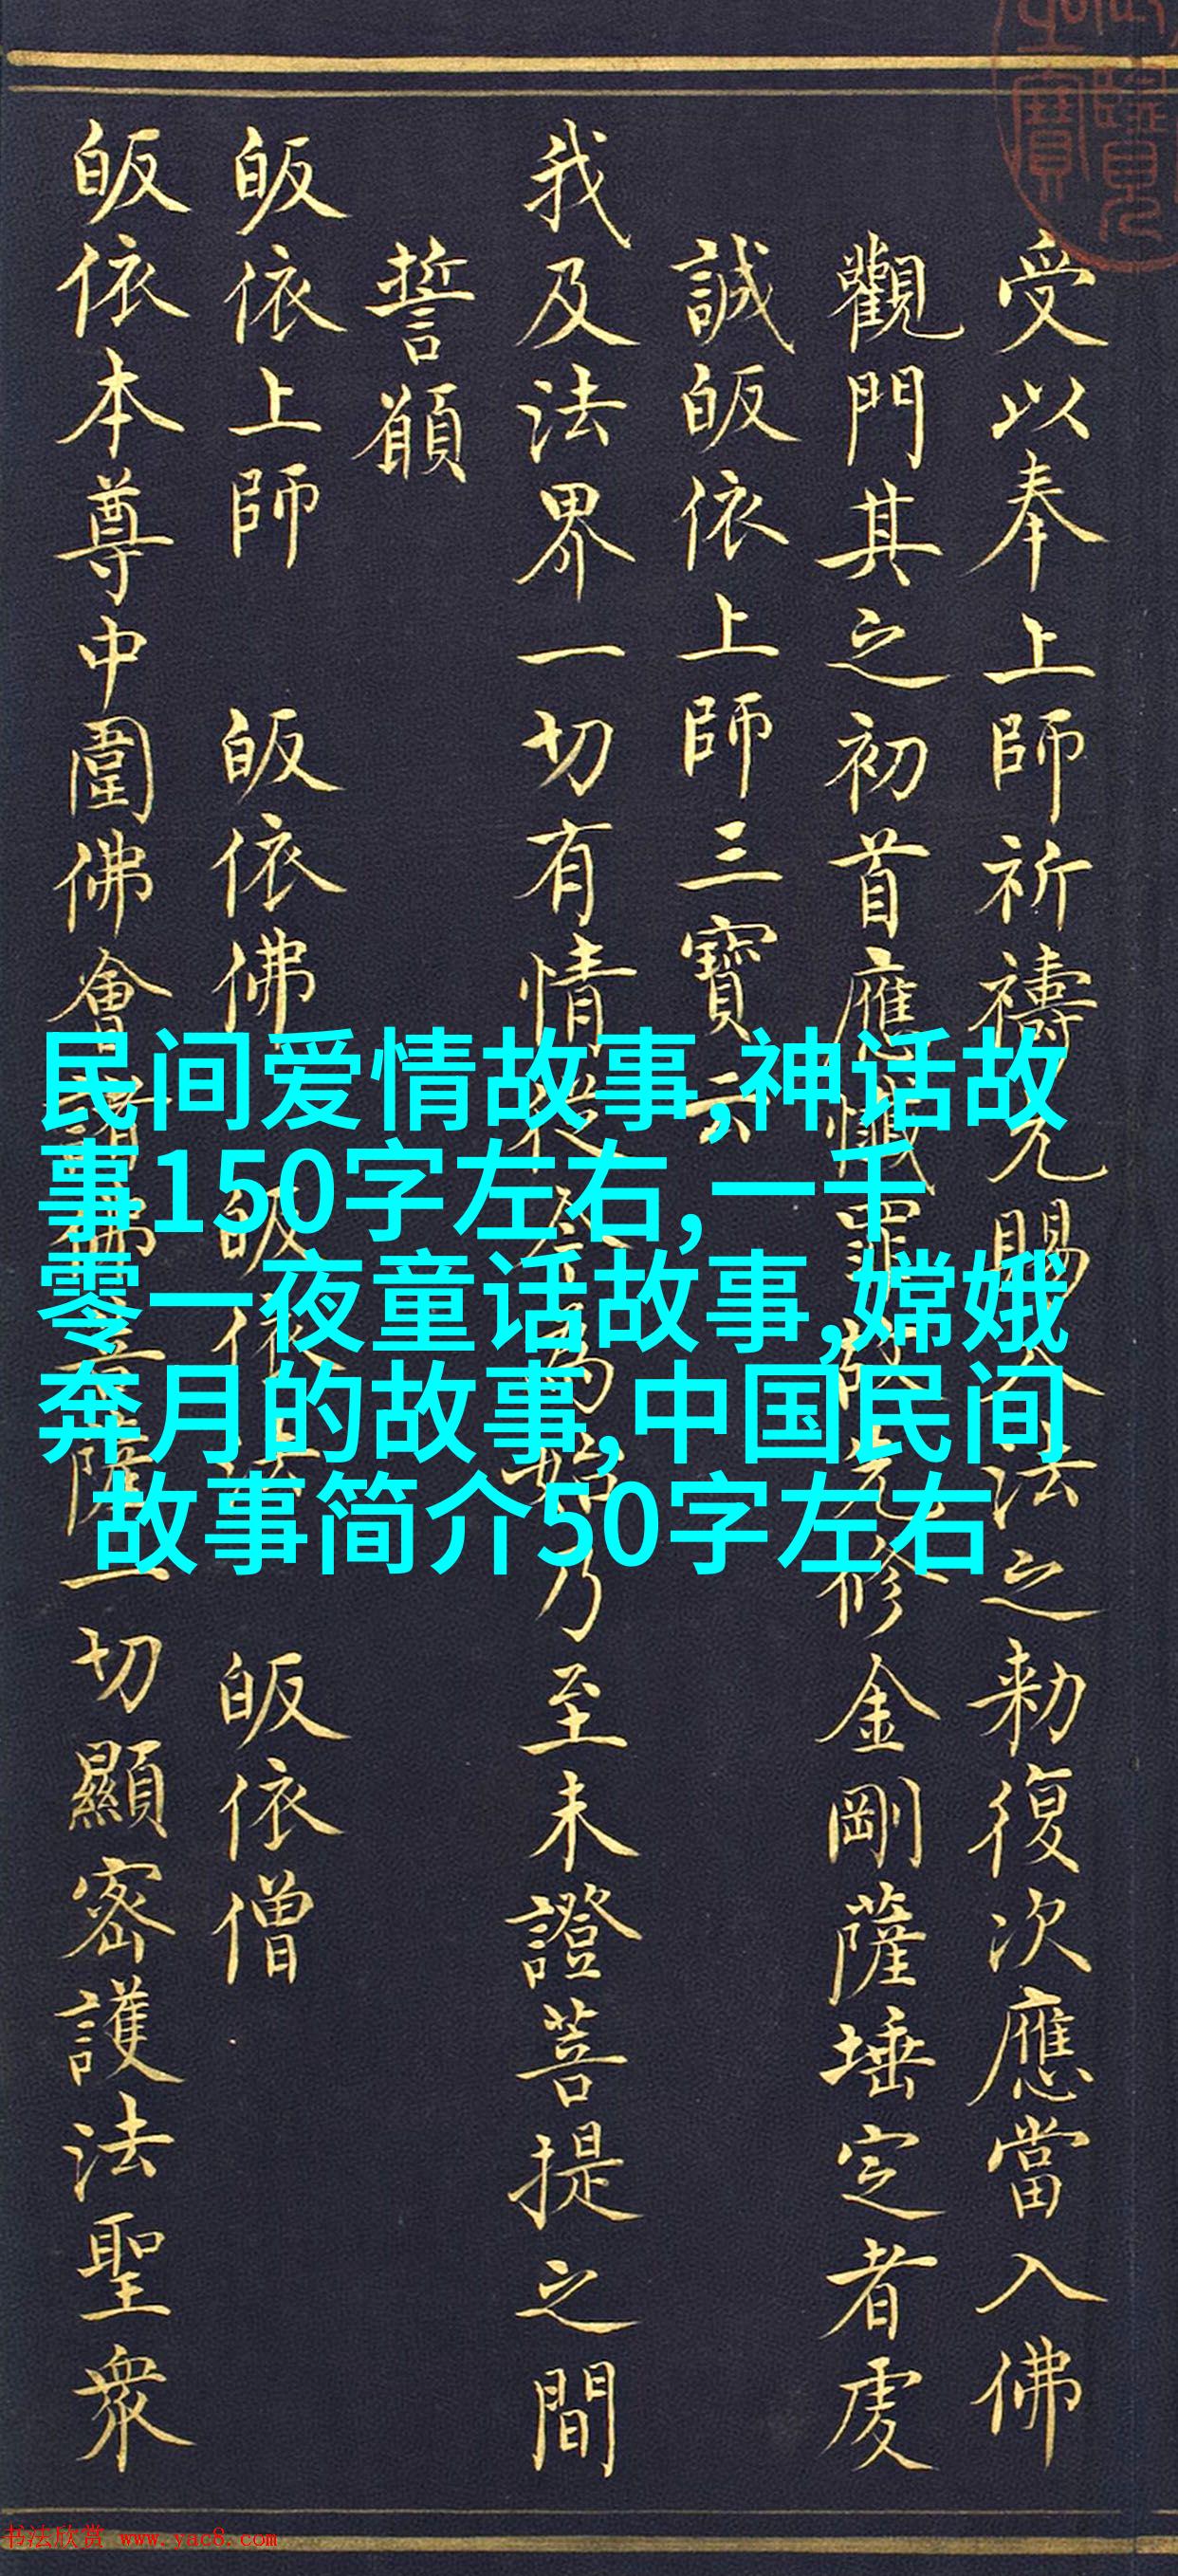 受以奉上師祈禱
觀門其之初首應懺罪
誠皈依上師三寶
我及法界一切有情
乃至未證菩提之間
誓願
皈依上師 皈依佛
皈依僧
皈依本尊中圍佛會
一切顯密護法聖衆
法之勅復次應當入佛
修金剛薩埵定者處
民间爱情故事,神话故
事150字左右,一千
零一夜童话故事,嫦娥
奔月的故事,中国民间
故事简介50字左右
书法欣赏 www.yac8.com